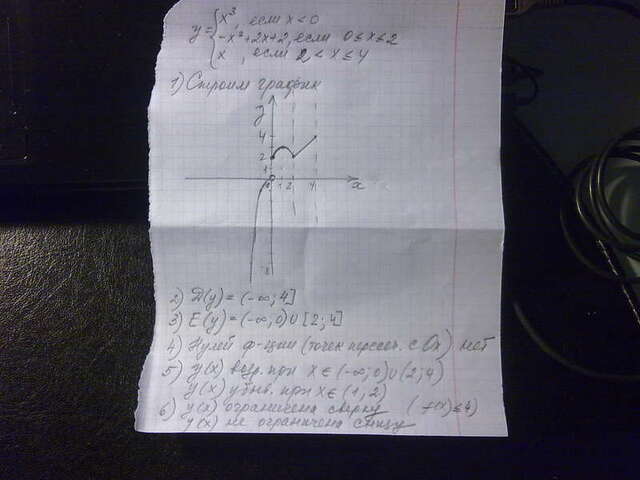 y = { x³, если x < 0
-x²+2x+2, если 0 ≤ x ≤ 2
x, если 2 < x ≤ 4
1) Строим график
y
4
2
1
0 1 2 4 x
2) D(y) = (-∞; 4]
3) E(y) = (-∞, 0) ∪ [2; 4]
4) Нулей ф-ции (точек пересеч. с Ox) нет
5) y(x) возр. при x ∈ (-∞; 0) ∪ (2; 4)
y(x) убыв. при x ∈ (1, 2)
6) y(x) ограничена сверху ( f(x) ≤ 4)
y(x) не ограничена снизу